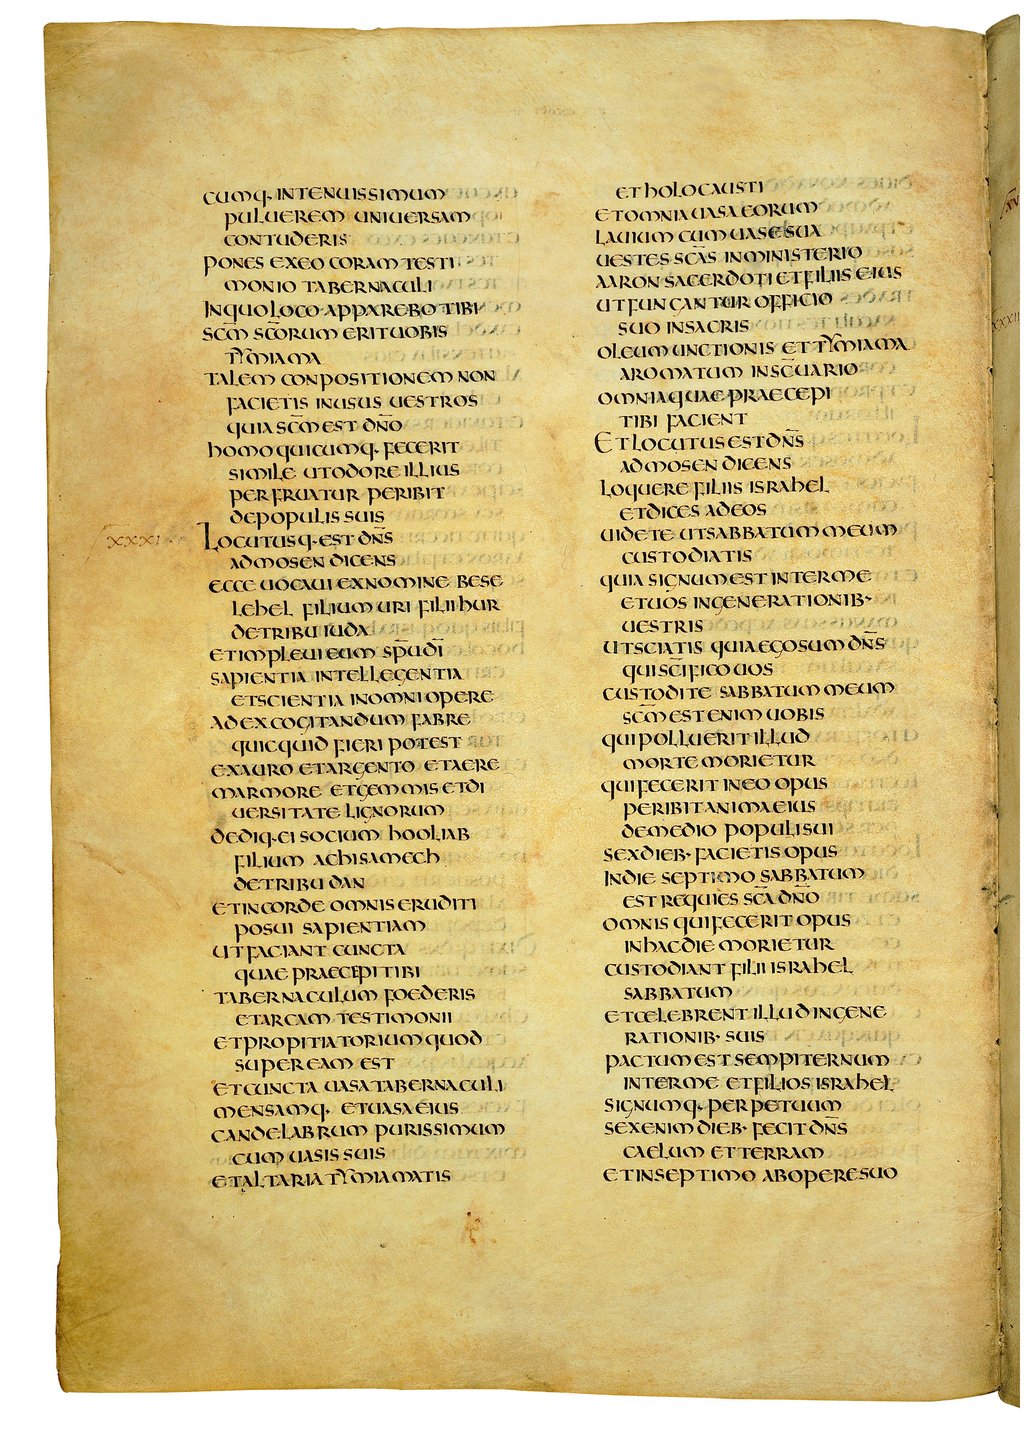 cumq· intenuissimum
puluerem uniuersam
contuderis
pones exeo coram testi
monio tabernaculi
inquo loco apparebo tibi
sc̄m sc̄orum erit uobis
tymiama
talem conpositionem non
facietis inusus uestros
quia sc̄m est dn̄o
homo quicumq· fecerit
simile ut odore illius
perfruatur peribit
depopulis suis
xxxi
Locutusq· est dn̄s
ad mosen dicens
ecce uocaui exnomine bese
lehel filium uri filii hur
detribu iuda
et impleui eum sp̄u dī
sapientia intellegentia
et scientia in omni opere
ad excogitandum fabre
quicquid fieri potest
exauro et argento et aere
marmore et gemmis et di
uersitate lignorum
dediq· ei socium hooliab
filium achisamech
detribu dan
et in corde omnis eruditi
posui sapientiam
ut faciant cuncta
quae praecepi tibi
tabernaculum foederis
et arcam testimonii
et propitiatorium quod
super eam est
et cuncta uasa tabernaculi
mensamq· et uasa eius
candelabrum purissimum
cum uasis suis
et altaria tymiamatis
et holocausti
et omnia uasa eorum
labium cum uase sua
uestes sc̄as in ministerio
aaron sacerdoti et filiis eius
ut fungantur officio
suo in sacris
oleum unctionis et tymiama
aromatum in sc̄uario
omnia quae praecepi
tibi facient
Et locutus est dn̄s
ad mosen dicens
loquere filiis israhel
et dices ad eos
uidete ut sabbatum meum
custodiatis
quia signum est inter me
et uos in generationib·
uestris
ut sciatis quia ego sum dn̄s
qui sc̄ifico uos
custodite sabbatum meum
sc̄m est enim uobis
qui polluerit illud
morte morietur
qui fecerit in eo opus
peribit anima eius
de medio populi sui
sex dieb· facietis opus
in die septimo sabbatum
est requies sc̄a dn̄o
omnis qui fecerit opus
in hac die morietur
custodiant filii israhel
sabbatum
et celebrent illud in gene
rationib· suis
pactum est sempiternum
inter me et filios israhel
signumq· perpetuum
sex enim dieb· fecit dn̄s
caelum et terram
et in septimo ab opere suo